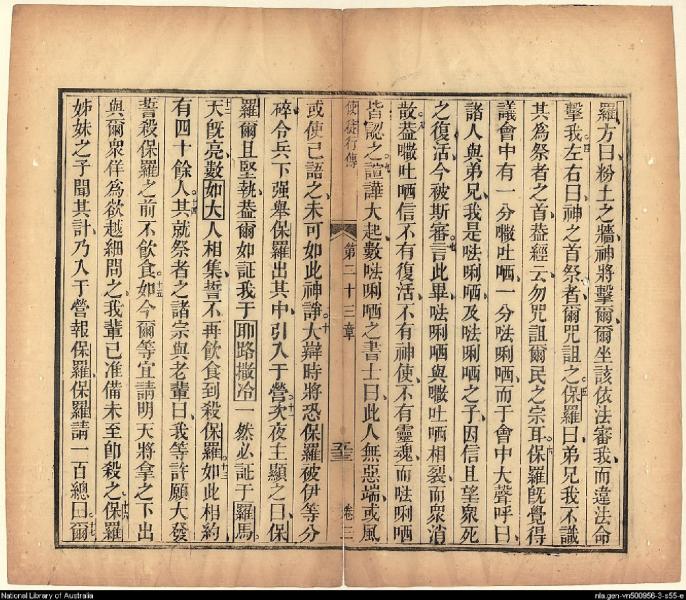 羅方曰粉土之牆神將擊爾爾坐該依法審我而違法命
擊我左右曰神之首祭者爾咒詛之保羅曰弟兄我不識
其為祭者之首葢經云勿咒詛爾民之宗耳保羅既覺得
議會中有一分吐哂一分唎哂而于會中大聲呼曰
諸人與弟兄我是唎哂及唎哂之子因信且望衆死
之復活今被斯審言此畢唎哂與吐哂相裂而衆消
散葢吐哂信不有復活不有神使不有靈魂而唎哂
皆認之諠譁大起數唎哂之書士曰此人無惡端或風
使徒行傳 第二十三章 卷三
或使已語之未可如此神諍大辯時將恐保羅被伊等分
碎令兵下强舉保羅出其中引入于營次夜主顯之曰保
羅爾且堅執葢爾如証我于耶路撒冷一然必証于羅馬
天既亮數如大人相集誓不再飲食到殺保羅如此相約
有四十餘人其就祭者之諸宗與老輩曰我等許願大發
誓殺保羅之前不飲食如今爾等宜請明天將拿之下出
與爾衆佯為欲越細問之我輩已准備未至即殺之保羅
姊妹之子聞其計乃入于營報保羅保羅請一百總曰爾
National Library of Australia
nla.gen-vn500956-3-s55-e